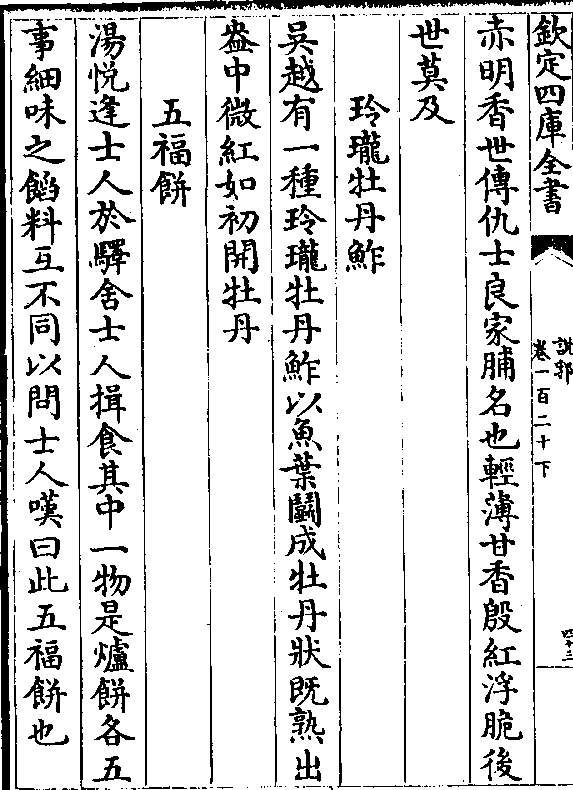 欽定四庫全書
說郛
卷一百二十下
四十三
赤明香世傳仇士良家脯名也輕薄甘香殷紅浮脆後
世莫及
玲瓏牡丹鮓
吳越有一種玲瓏牡丹鮓以魚葉鬭成牡丹狀既熟出
盎中微紅如初開牡丹
五福餅
湯悅逢士人於驛舍士人揖食其中一物是爐餅各五
事細味之餡料互不同以問士人嘆曰此五福餅也